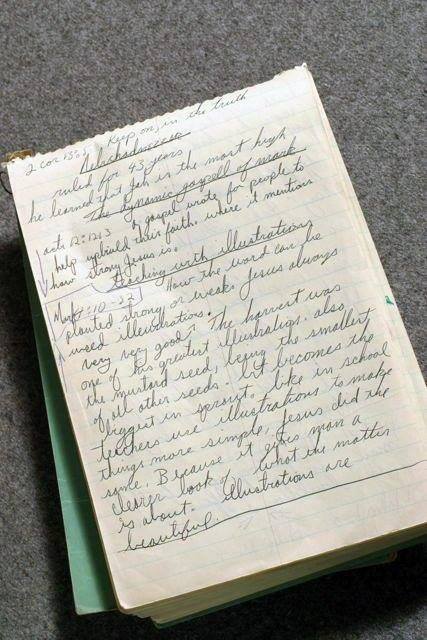 2 cor keep on, in the truth
ruled for 43 years
he learned that Jah is the most high
The dynamic gospell of mark
acts 12:12,13 A gospel wrote for people to
help upbuild their faith. where it mentions
how strong Jesus is.
teaching with illustrations
Mark How the word can be
planted strong or weak. Jesus always
used illustrations.
very very good. The harvest was
one of his greatest illustration. also
the mustard seed, being the smallest
of all other seeds. but becomes the
biggest in sprout. like in school
teachers use illustrations to make
things more simple, Jesus did the
same. Because it gives man a
clearer look of what the matter
is about. Illustrations are
beautiful.